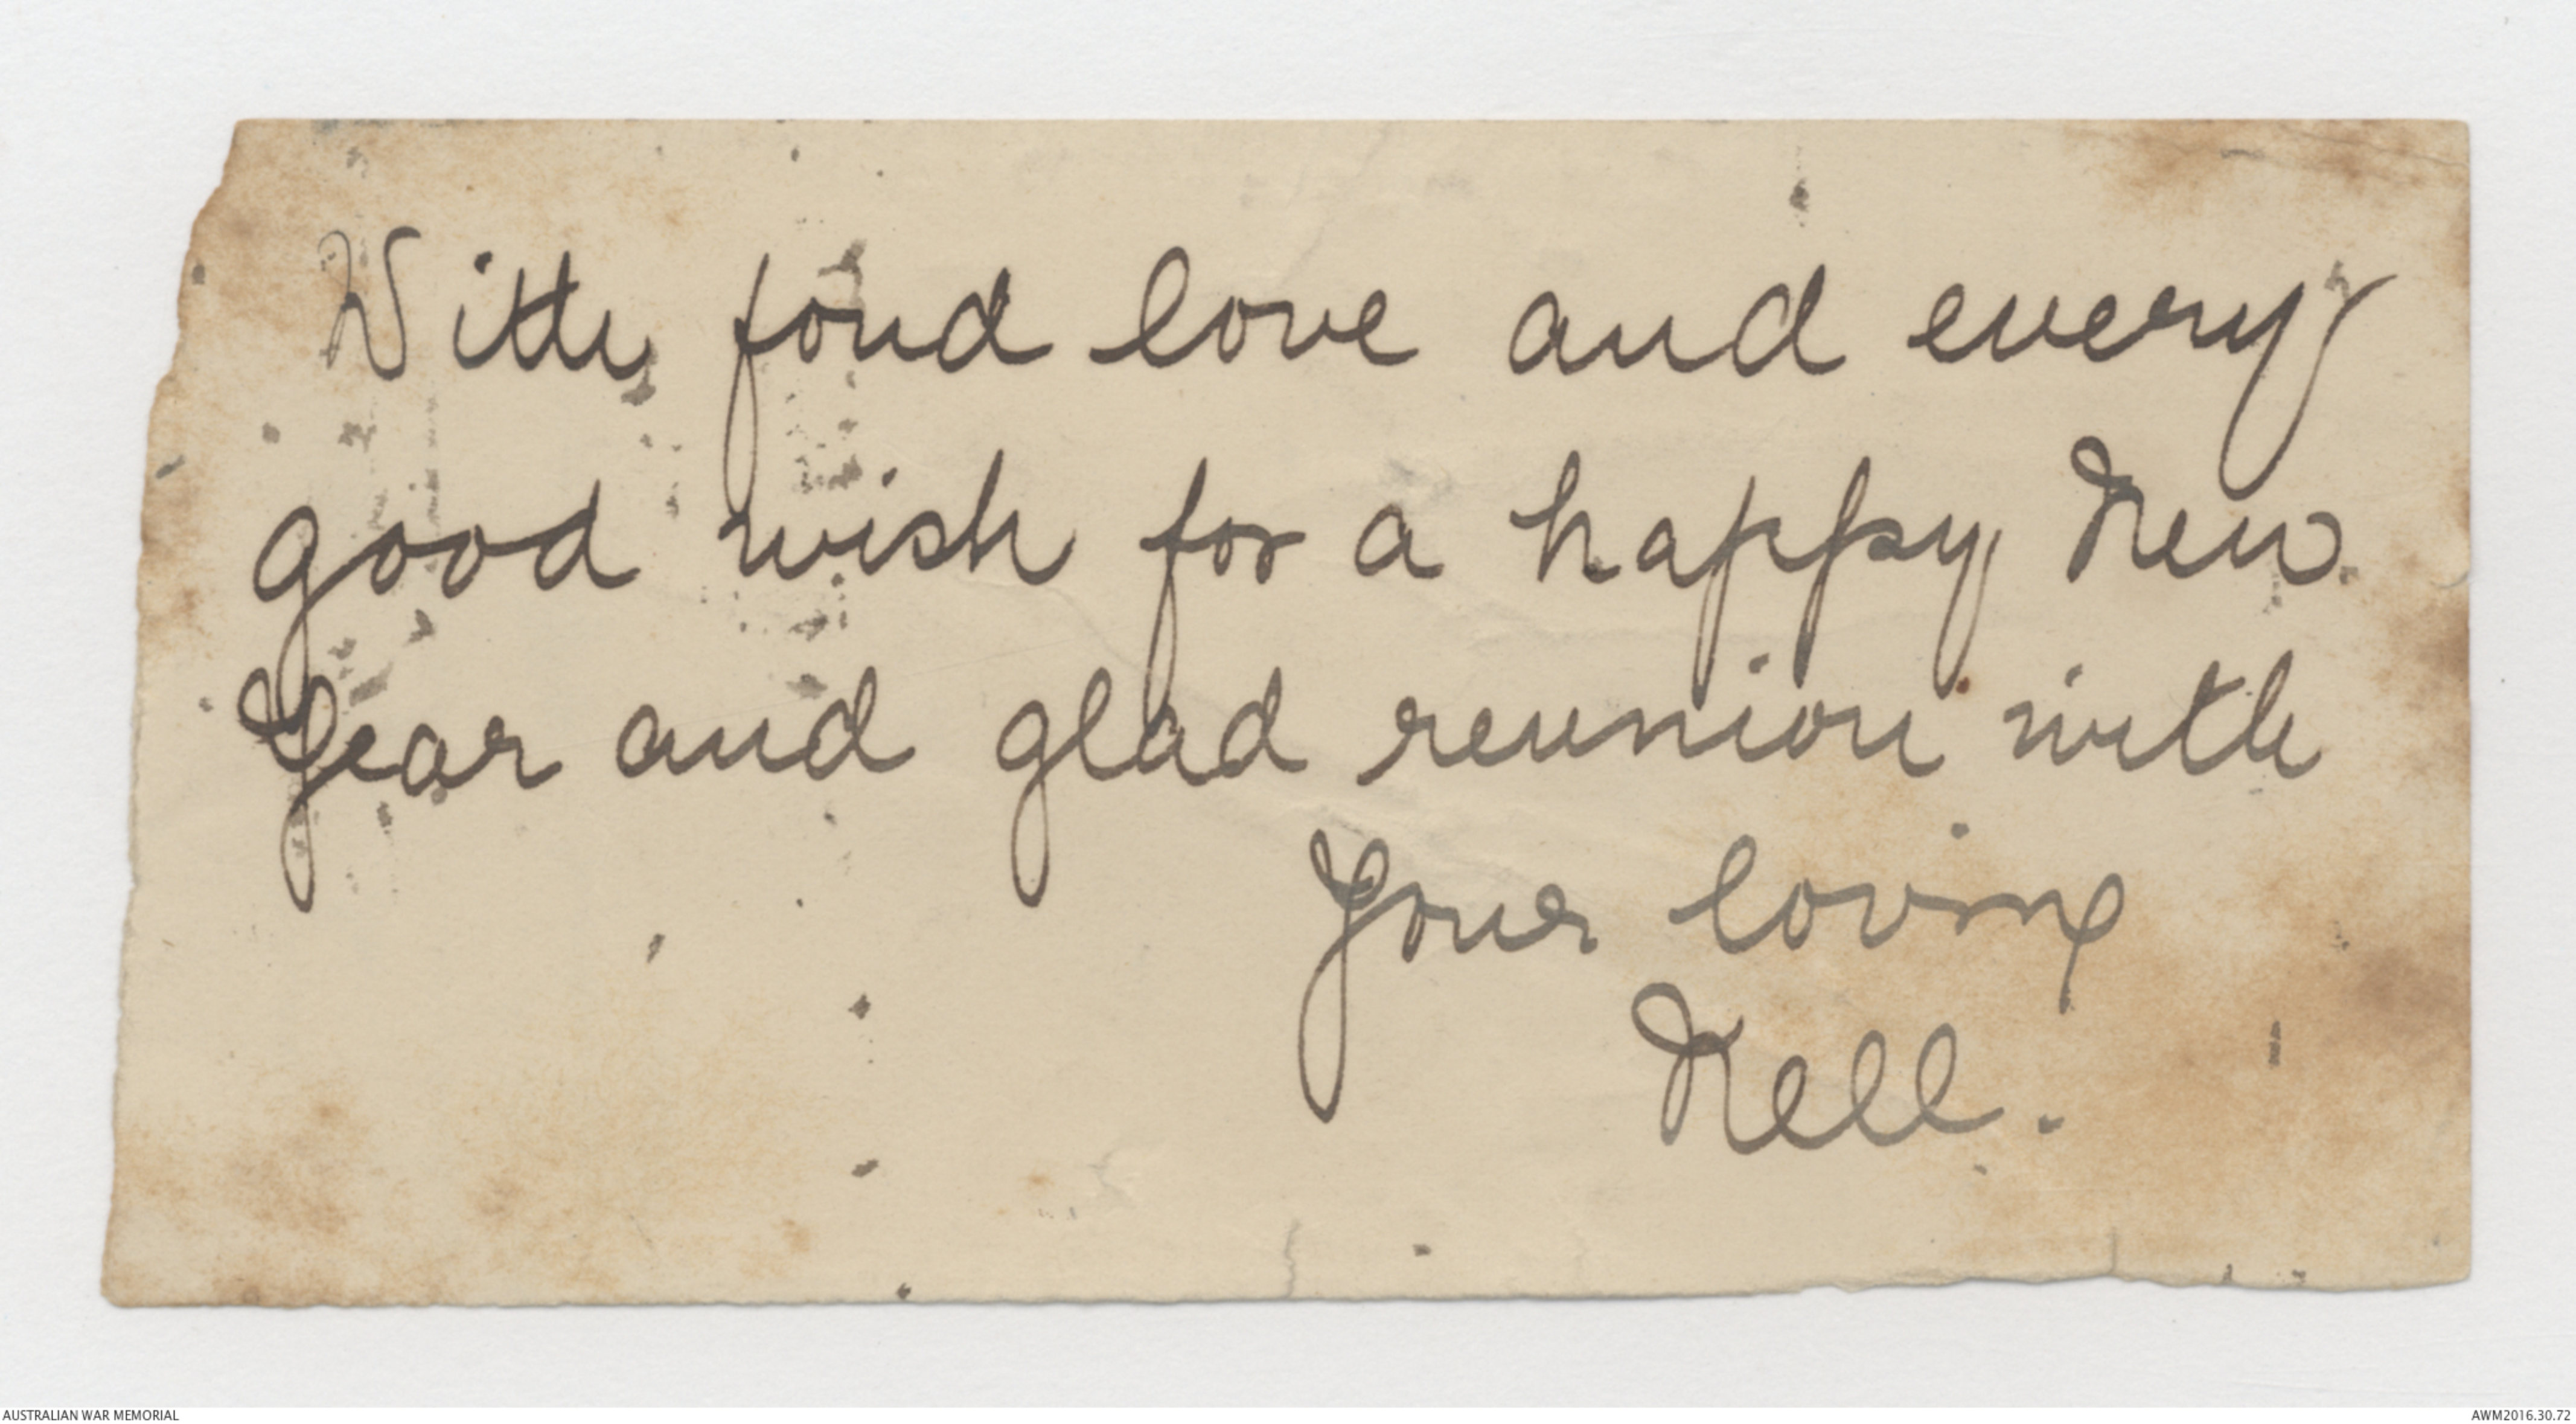 With fond love and every
good wish for a happy New
Year and glad reunion with
Your loving
Nell.
AUSTRALIAN WAR MEMORIAL
AWM2016.30.72